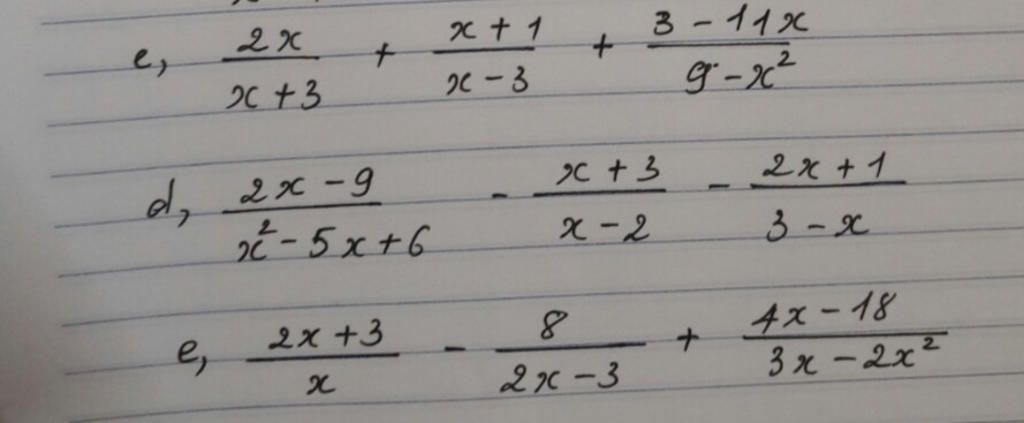 e, \frac{2x}{x+3} + \frac{x+1}{x-3} + \frac{3-11x}{9-x^2}
d, \frac{2x-9}{x^2-5x+6} - \frac{x+3}{x-2} - \frac{2x+1}{3-x}
e, \frac{2x+3}{x} - \frac{8}{2x-3} + \frac{4x-18}{3x-2x^2}